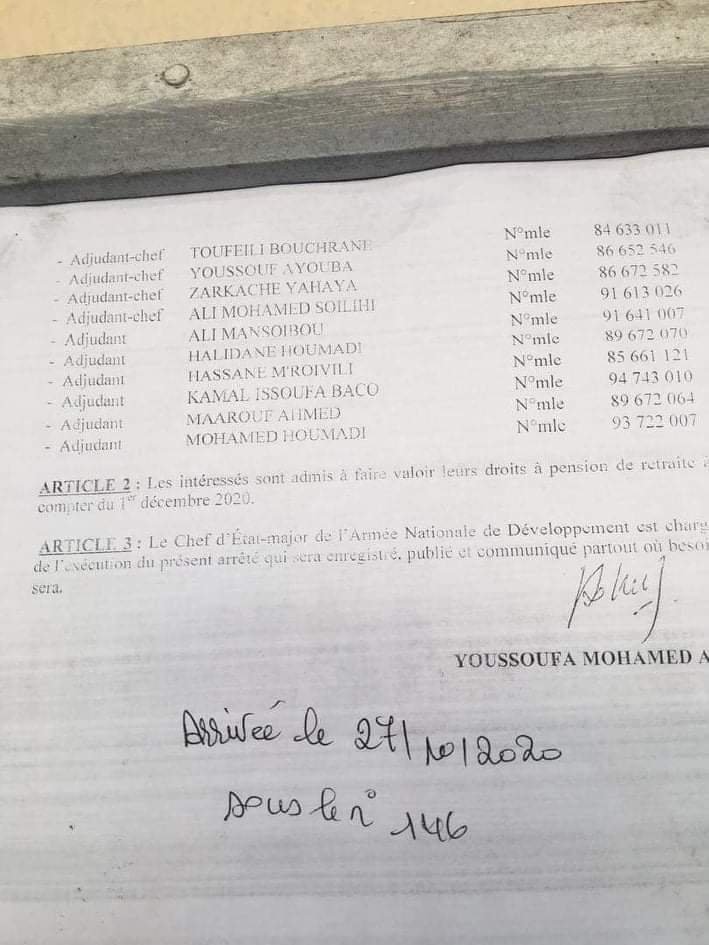 - Adjudant-chef TOUFEILI BOUCHRANE N°mle 84 633 011
- Adjudant-chef YOUSSOUF AYOUBA N°mle 86 652 546
- Adjudant-chef ZARKACHE YAHAYA N°mle 86 672 582
- Adjudant-chef ALI MOHAMED SOILIHI N°mle 91 613 026
- Adjudant ALI MANSOIBOU N°mle 91 641 007
- Adjudant HALIDANE HOUMADI N°mle 89 672 070
- Adjudant HASSANE M'ROIVILI N°mle 85 661 121
- Adjudant KAMAL ISSOUFA BACO N°mle 94 743 010
- Adjudant MAAROUF AHMED N°mle 89 672 064
- Adjudant MOHAMED HOUMADI N°mle 93 722 007
ARTICLE 2 : Les intéressés sont admis à faire valoir leurs droits à pension de retraite à
compter du 1er décembre 2020.
ARTICLE 3 : Le Chef d'État-major de l'Armée Nationale de Développement est charg
de l'exécution du présent arrêté qui sera enregistré, publié et communiqué partout où besoi
sera.
YOUSSOUFA MOHAMED A
Arrivée le 27/10/2020
sous le n° 146